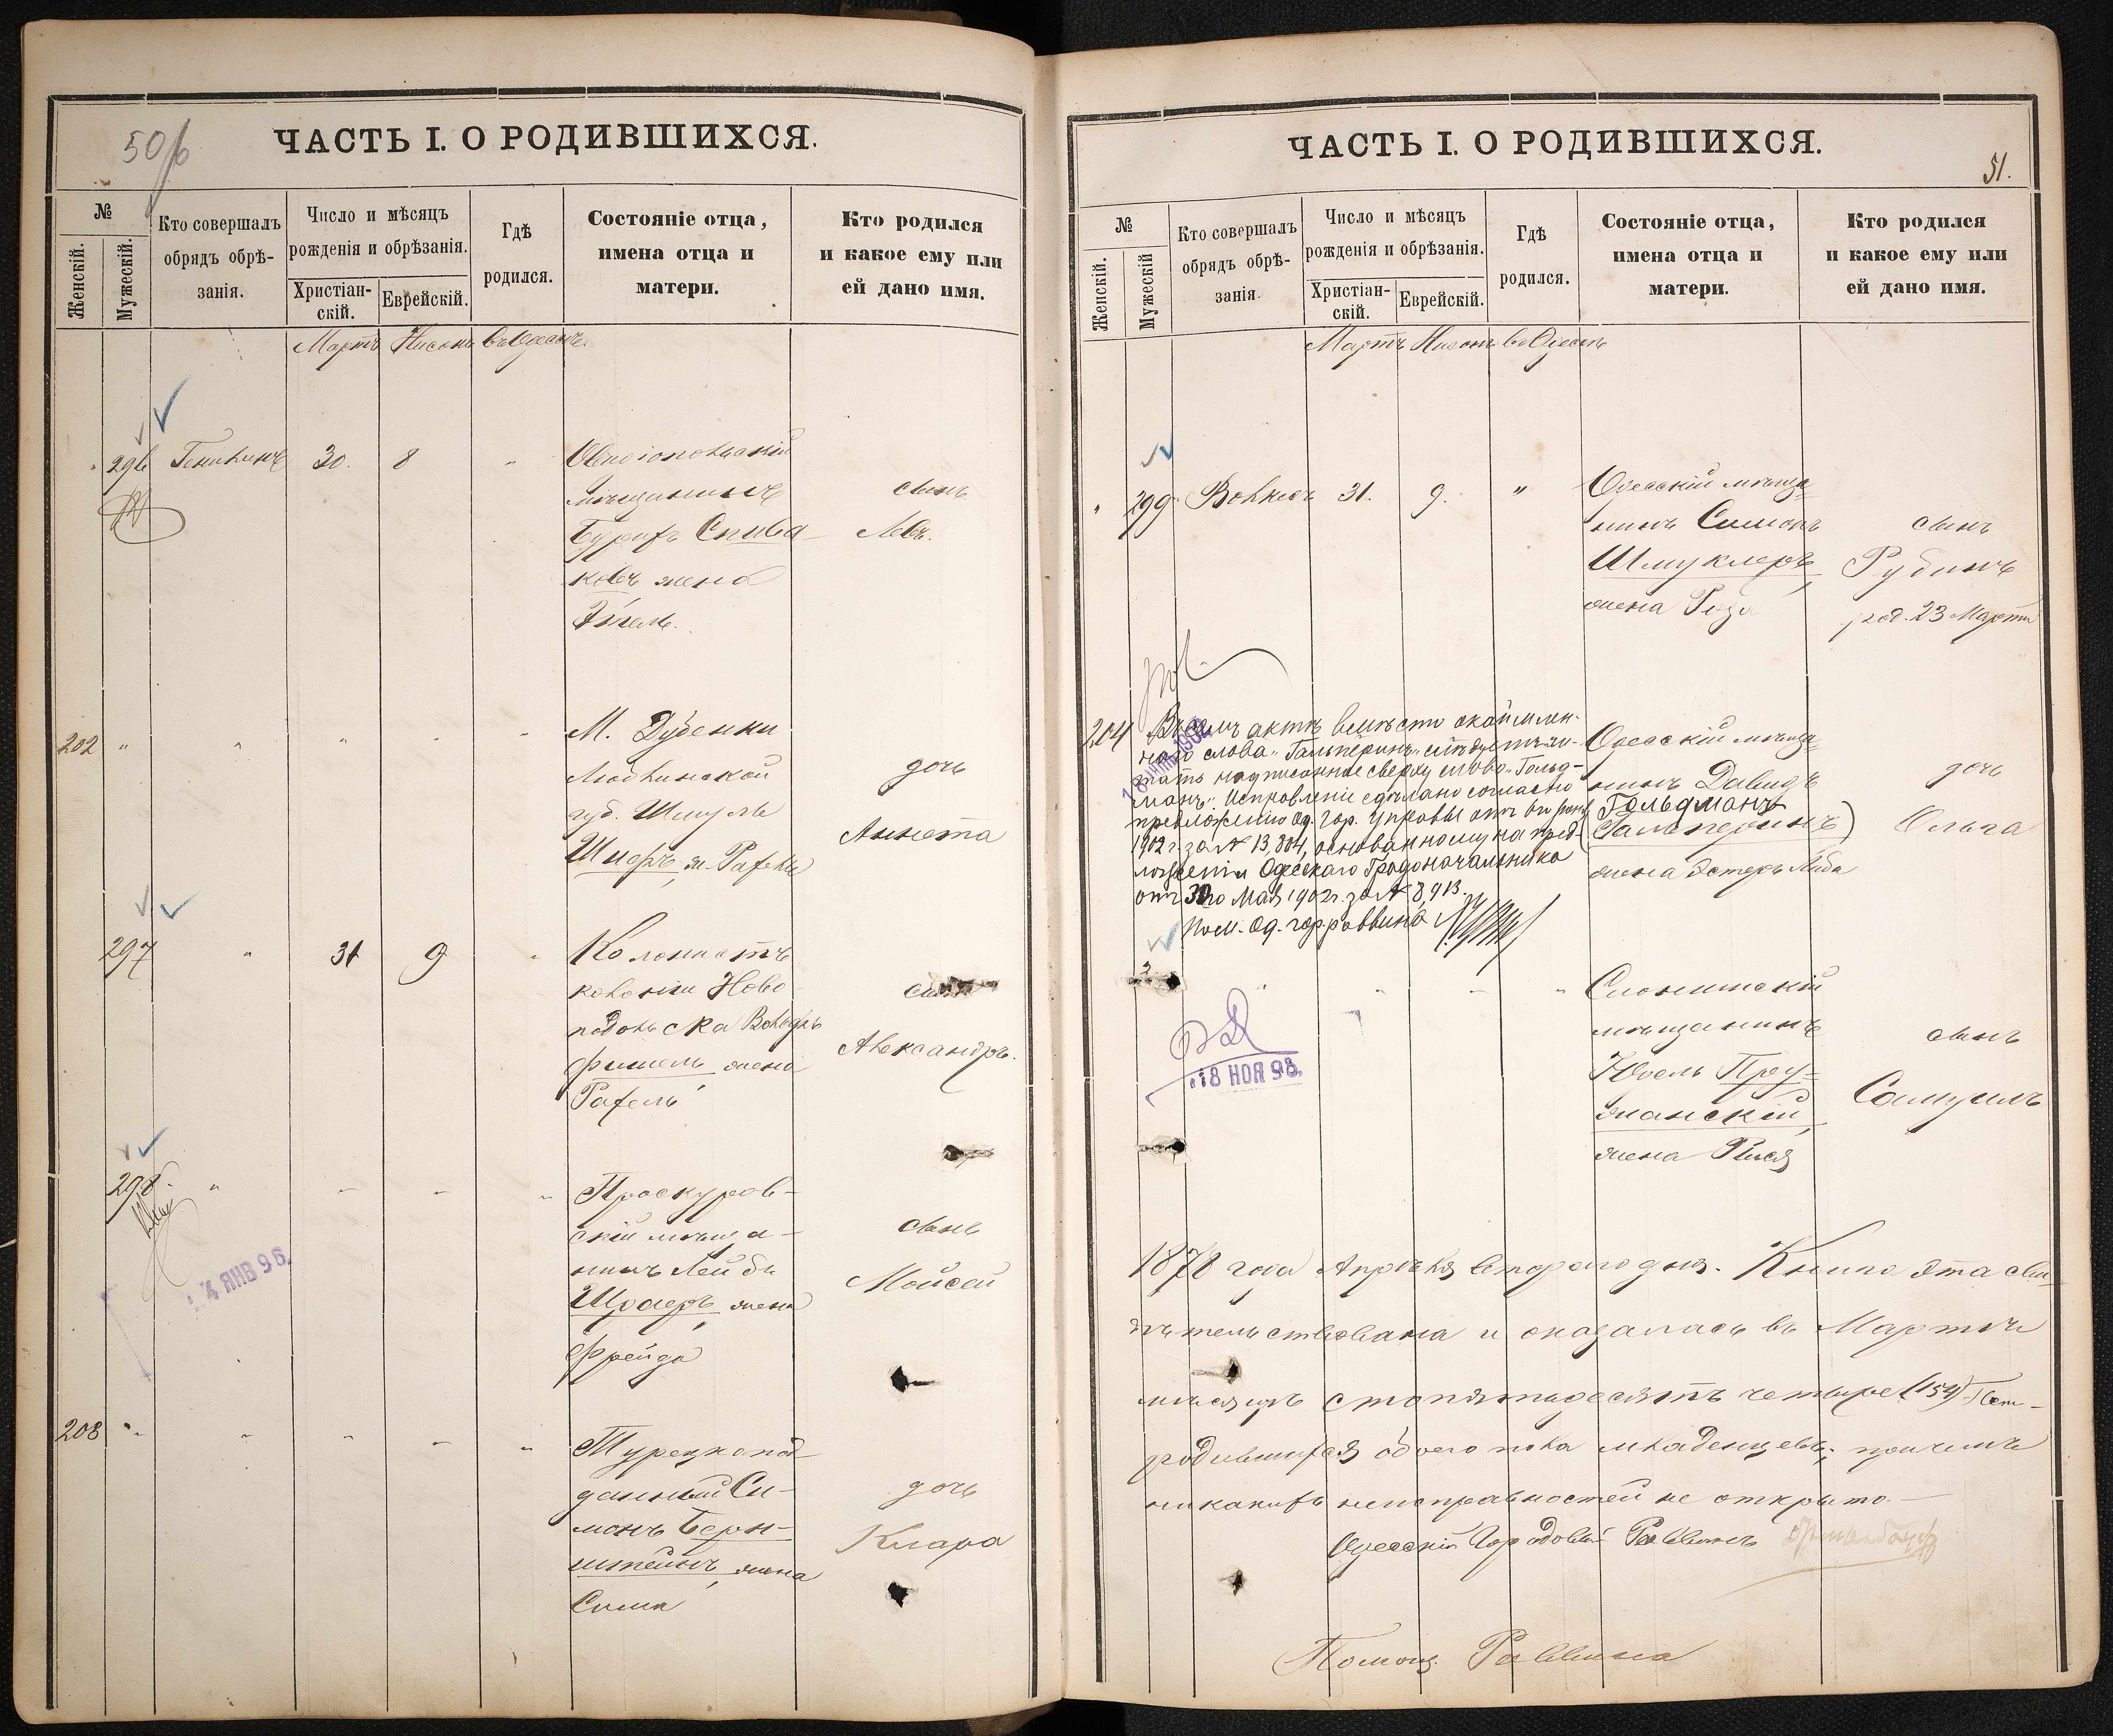 50/6
ЧАСТЬ I. О РОДИВШИХСЯ.
№
Женскій.
Мужескій.
Кто совершалъ
обрядъ обрѣ-
занія.
Число и мѣсяцъ
рожденія и обрѣзанія.
Христіан-
скій.
Еврейскій.
Гдѣ
родился.
Состояніе отца,
имена отца и
матери.
Кто родился
и какое ему или
ей дано имя.
Мартъ Нисонъ въ Одессѣ
296 30. 8
Овидіопольскій
мѣщанинъ
Бурихъ Спива-
ковъ жена
Этель.
сынъ
Левъ.
202 " " " "
М. Дубенки
Люблинской
губ. Шмуль
Шнеръ, ж. Рахель
дочь
Аннета
297 " 31 9 "
Колонистъ
колоніи Ново
подольска Вольфъ
Фишель, жена
Рахель
сынъ
Александръ.
298. " " " "
Проскуров-
скій мѣща-
нинъ Лейбъ
Шраеръ, жена
Фрейда
сынъ
Мойсей
4 ЯНВ 96.
203 " " " " "
Турецкопод-
данный Си-
монъ Берн-
штейнъ, жена
Сима
дочь
Клара
ЧАСТЬ I. О РОДИВШИХСЯ.
51.
№
Женскій.
Мужескій
Кто совершалъ
обрядъ обрѣ-
занія.
Число и мѣсяцъ
рожденія и обрѣзанія.
Христіан-
скій.
Еврейскій.
Гдѣ
родился.
Состояніе отца,
имена отца и
матери.
Кто родился
и какое ему или
ей дано имя.
Мартъ Нисонъ въ Одессѣ
" 299 31. 9. "
Одесскій мѣща-
нинъ Симонъ
Шмуклеръ,
жена Роза
сынъ
Рубинъ
род. 23 Марта
204
Въ семъ актѣ вмѣсто окаймлен-
наго слова "Гальперинъ" слѣдуетъ чи-
тать надписанное сверху слово "Гольд-
манъ". Исправленіе сдѣлано согласно
предложенію Од. гор. Управы отъ
1902 г. за № 13,884, основанному на пред-
ложеніи Одесскаго Градоначальника
отъ 30го Мая 1902 г. за № 8,913.
Пом. Од. гор. раввина
Одесскій мѣща-
нинъ Давидъ
Гольдманъ
(Гальперинъ)
жена Эстеръ Либа
дочь
Ольга
" " " "
18 НОЯ 98.
Слонимскій
мѣщанинъ
Юдель Пру-
жанскій,
жена Рися
сынъ
Самуилъ
1878 года Апрѣля втораго дня. Книга эта сви-
дѣтельствована и оказалась въ Мартѣ
мѣсяцѣ стопятьдесятъ четыре (154)
родившихся обоего пола младенцевъ; причемъ
никакихъ неисправностей не открыто.
Одесскій Городовый Раввинъ
Помощ. Раввина